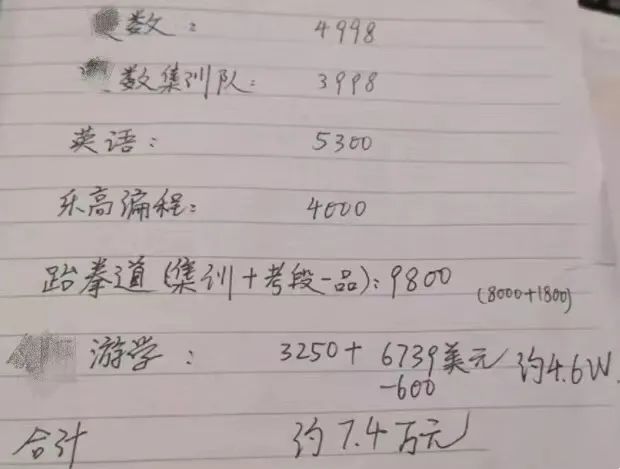 数: 4998
数集训队: 3998
英语: 5300
乐高编程: 4000
跆拳道(集训+考段一品): 9800 (8000+1800)
游学: 3250+ 6739美元 约4.6W
-600
合计 约7.4万元